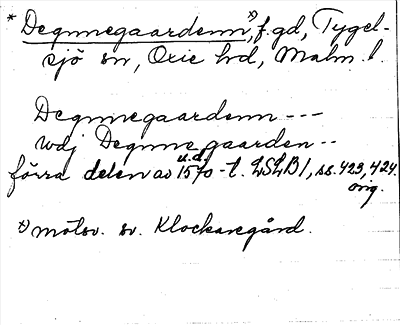 * Degnnegaardenn, x) f. gd, Tygel-
sjö sn, Oxie hd, Malm. l.
Degnnegaardenn ---
wdj Degnne gaarden --
u.d.
förra delen av 1570-t. LSLB 1, ss. 423, 424.
orig.
x) motsv. sv. Klockaregård.